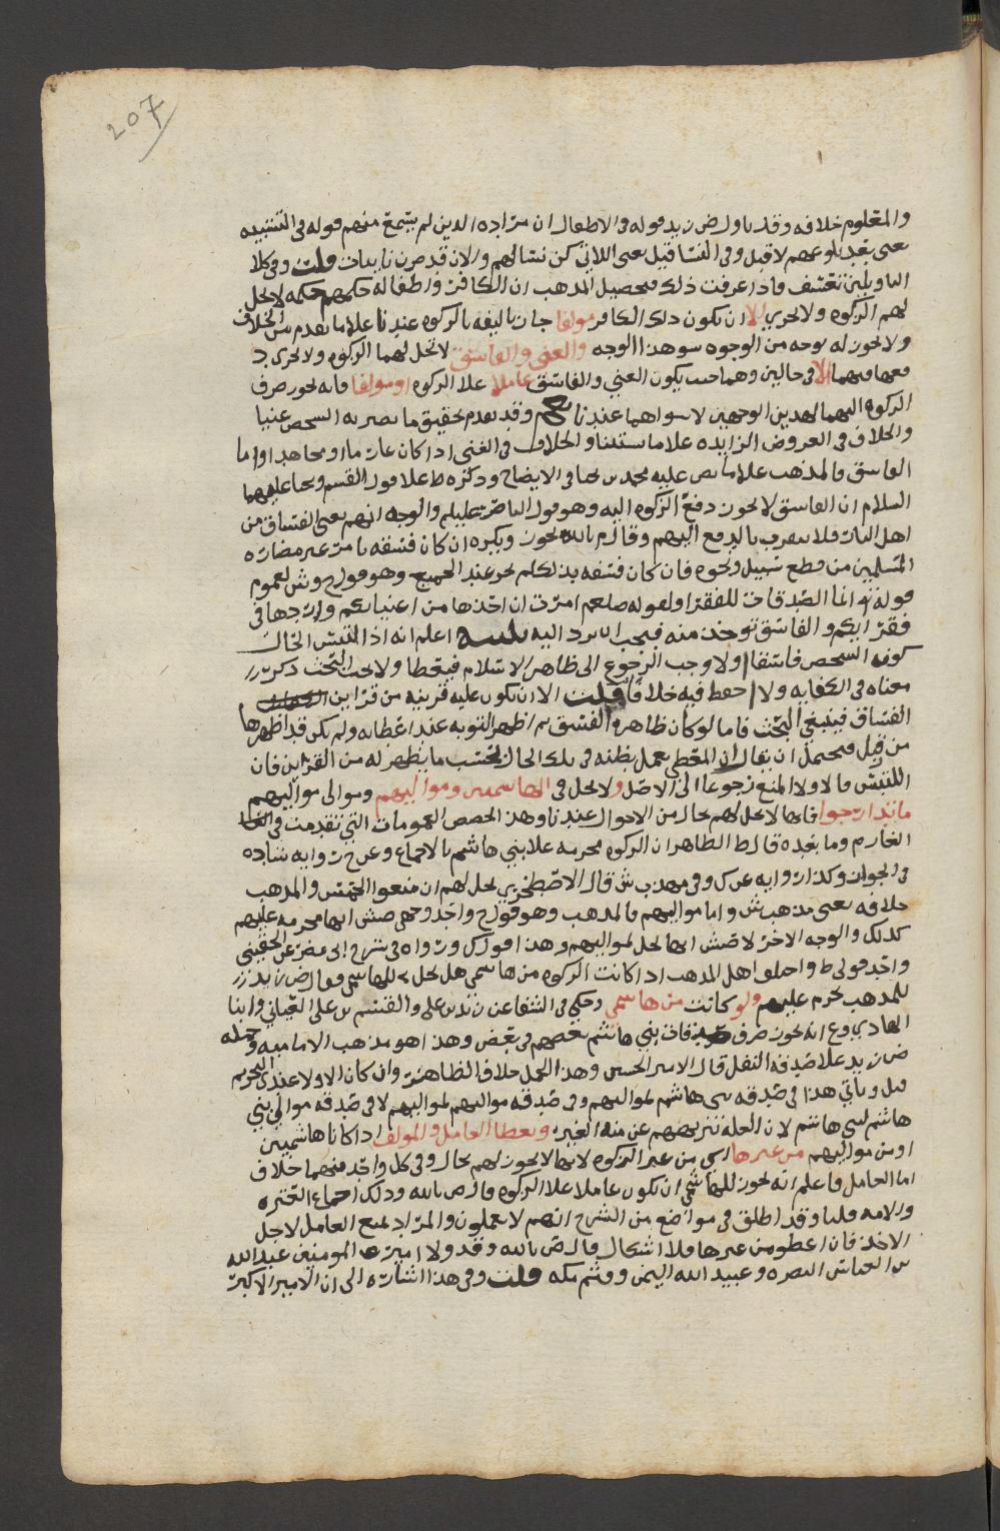 207
والمعلوم خلافه وقد تاول ض زيد قوله في الاطفال ان مراده الدين لم يسمع منهم قوله في التشبيه
يعني بعد بلوغهم لا قبل وفي النسا قيل يعني اللاتي كن نسالهم والان قد صرن تايبات قلت وفي كلا
التاويلين تعسف فاذا عرفت ذلك فتحصيل المذهب ان الكافر واطفاله حكمهم حكمه لا تحل
لهم الزكوه ولا تجزي الا ان يكون ذلك الكافر مولفا جاز تاليفه بالزكوه عندنا علا ما تقدم من الخلاف
ولا تجوز له بوجه من الوجوه سوهذا الوجه والغني والفاسق لا تحل لهما الزكوه ولا تجزي د
فعها اليهما الا في حالين وهما حيث يكون الغني والفاسق عاملا علا الزكوه او مولفا فانه يجوز صرف
الزكوه اليهما لهدين الوجهين لا سواهما عندنا نعم وقد تقدم تحقيق ما يصير به الشخص غنيا
والخلاف في العروض الزايده علا ما سلفنا والخلاف في الغني اذا كان غارما او مجاهدا واما
الفاسق فالمذهب علا ما نص عليه محمد بن يحيا في الايضاح وذكره ط علا قول القسم ويحيا عليهما
السلام ان الفاسق لا يجوز دفع الزكوه اليه وهو قول الناصر عليلم والوجه انهم يعني الفساق من
اهل النار فلا يتقرب بالدفع اليهم وقال م بالله يجوز ويكره ان كان فسقه بامر غير مضاره
المسلمين من قطع سبيل ونحوه فان كان فسقه بذلك لم يجز عند الجميع وهو قول ح وش لعموم
قوله تع انما الصدقات للفقرا ولقوله صلعم امرت ان اخذها من اغنيايكم واردها في
فقرايكم والفاسق توخذ منه فيجب ان ترد اليه تنبيه اعلم انه اذا التبس الحال
كون الشخص فاسقا ام لا وجب الرجوع الى ظاهر الاسلام فيعطا ولا يجب البحث ذكر
معناه في الكفايه ولا احفظ فيه خلافا قلت الا ان يكون عليه قرينه من قراين
الفساق فينبغي البحث فاما لو كان ظاهره الفسق ثم اظهر التوبه عند اعطايه ولم يكن قد اظهرها
من قبل فيحتمل ان يقال ان المعطي يعمل بظنه في تلك الحال بحسب ما يظهر له من القراين فان
التبس فالاولا المنع رجوعا الى الاصل ولا تحل في الهاشميين ومواليهم وموالي مواليهم
ما تدارجوا فانها لا تحل لهم بحال من الاحوال عندنا وهذا يخصص العمومات التي تقدمت في
الغارم وما بعده قال ط الظاهر ان الزكوه محرمه علا بني هاشم بالاجماع وعن ح روايه شاذه
في الجواز وكذا روايه عن ك وفي مهذب ش قال الاصطخري تحل لهم ان منعوا الخمس والمذهب
خلافه يعني مذهب ش واما مواليهم فالمذهب وهو قول ح واحد وجهي صش انها محرمه عليهم
كذلك والوجه الاخر لاصش انها تحل لمواليهم وهذا قول ك ورواه في شرح ابي مضر عن الحقيني
واحد قولي ط واختلف اهل المذهب اذا كانت الزكوه من هاشمي هل تحل للهاشمي فقال ض زيد
للمذهب تحرم عليهم ولو كانت من هاشمي وحكي في الشفا عن زيد بن علي والقسم بن علي العياني وابنا
الهادي وع انه يجوز صرف صدقات بني هاشم بعضهم في بعض وهذا هو مذهب الاماميه وحمله
ض زيد علا صدقه النفل قال الامير الحسين وهذا الحمل خلاف الظاهر وان كان الاولا عندي التحريم
قيل وياتي هذا في صدقه بني هاشم لمواليهم وفي صدقه مواليهم لمواليهم لا في صدقه موالي بني
هاشم لبني هاشم لان العله تنزيههم عن منه الغير ويعطا العامل والمولف اذا كانا هاشميين
او من مواليهم من غيرها اي من غير الزكوه لانها لا تجوز لهم بحال وفي كل واحد منهما خلاف
اما العامل فاعلم انه يجوز للهاشمي ان يكون عاملا علا الزكوه قال ض بالله وذلك اجماع العتره
والامه قلنا وقد اطلق في مواضع من الشرح انهم لا يعملون والمراد بمنع العامل لاجل
الاخذ فان اعطو من غيرها فلا اشكال قال ض بالله وقد ولا امير المومنين عبدالله
بن العباس البصره وعبيد الله اليمن وقثم مكه قلت وفي هذا اشاره الى ان الامير الاكبر